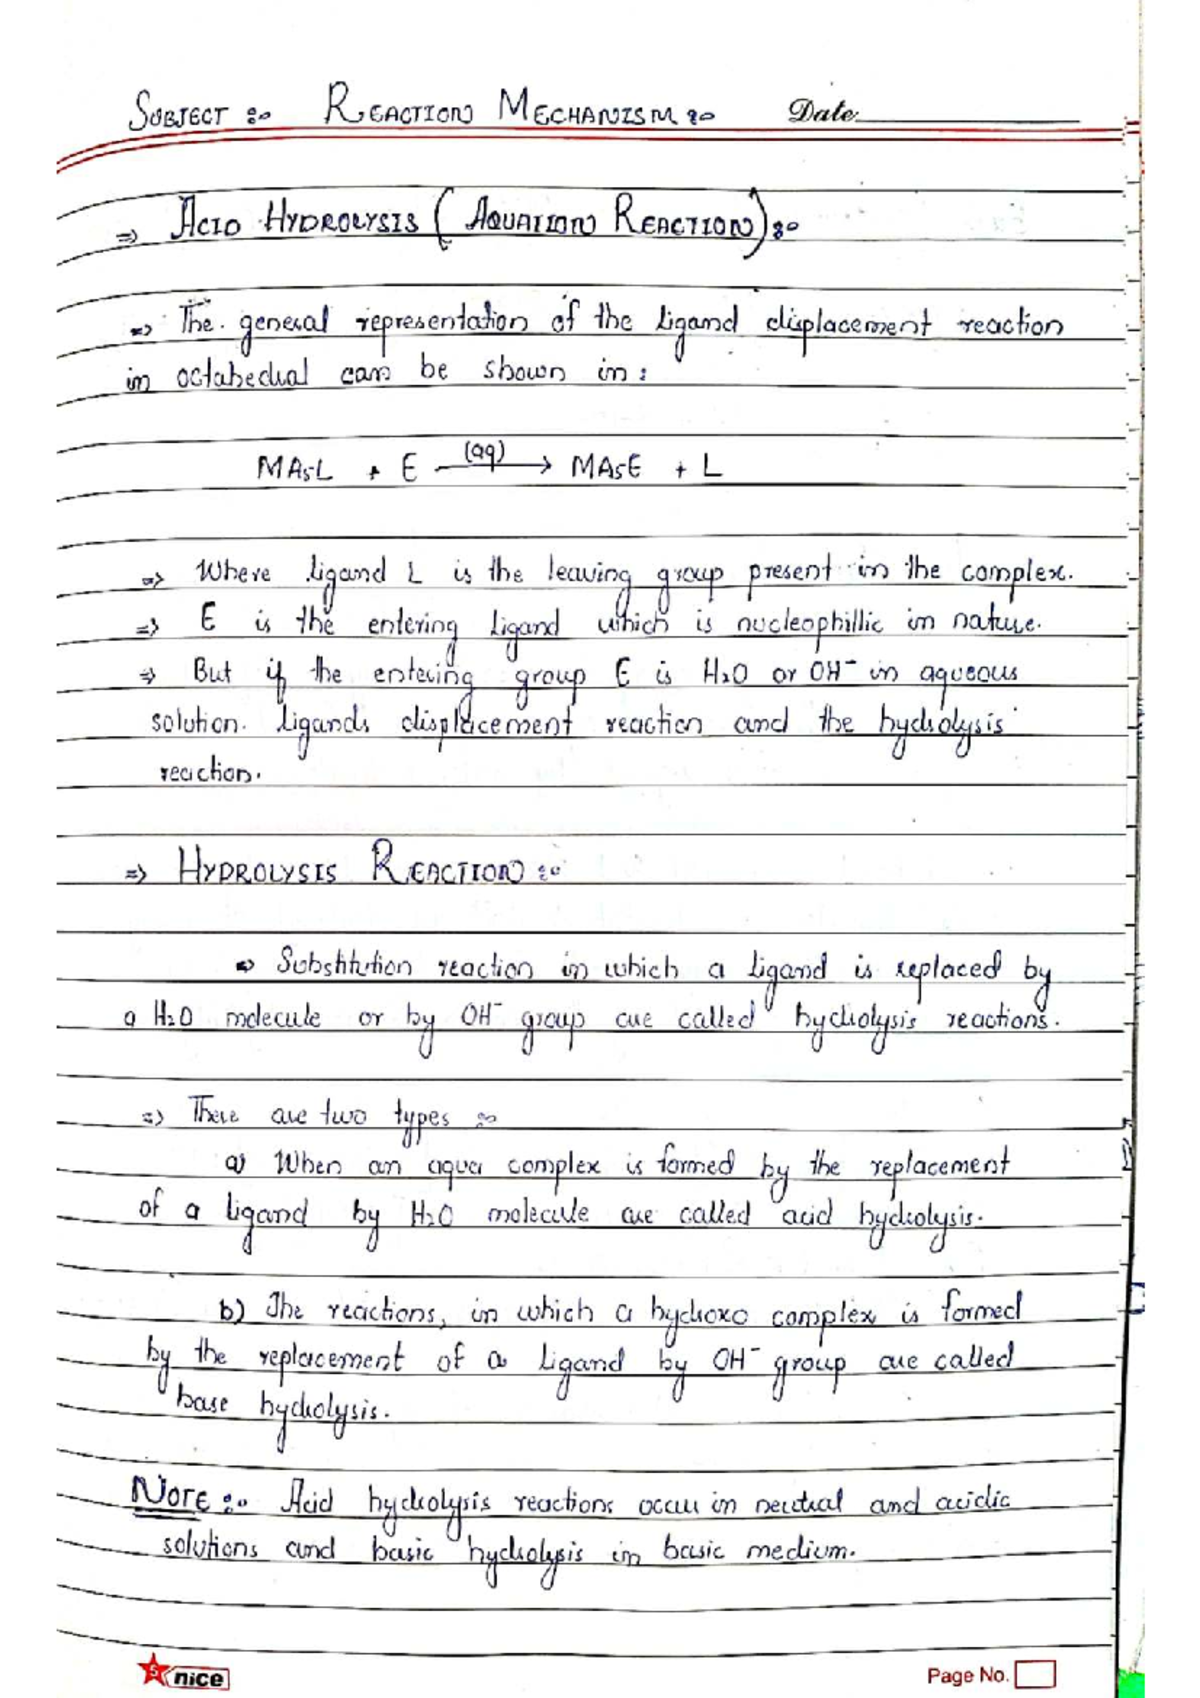 SUBJECT :- REACTION MECHANISM :- Date:
=> ACID HYDROLYSIS ( AQUATION REACTION) :-
=> The general representation of the ligand displacement reaction
in octahedral can be shown in :
MA5L + E (aq) → MA5E + L
=> Where ligand L is the leaving group present in the complex.
=> E is the entering ligand which is nucleophillic in nature.
=> But if the entering group E is H2O or OH⁻ in aqueous
solution. ligands displacement reaction and the hydrolysis
reaction.
=> HYDROLYSIS REACTION :-
=> Substitution reaction in which a ligand is replaced by
a H2O molecule or by OH⁻ group are called hydrolysis reactions.
=> There are two types :-
a) When an aqua complex is formed by the replacement
of a ligand by H2O molecule are called acid hydrolysis.
b) The reactions, in which a hydroxo complex is formed
by the replacement of a ligand by OH⁻ group are called
base hydrolysis.
NOTE :- Acid hydrolysis reactions occur in neutral and acidic
solutions and basic hydrolysis in basic medium.
5 nice Page No.